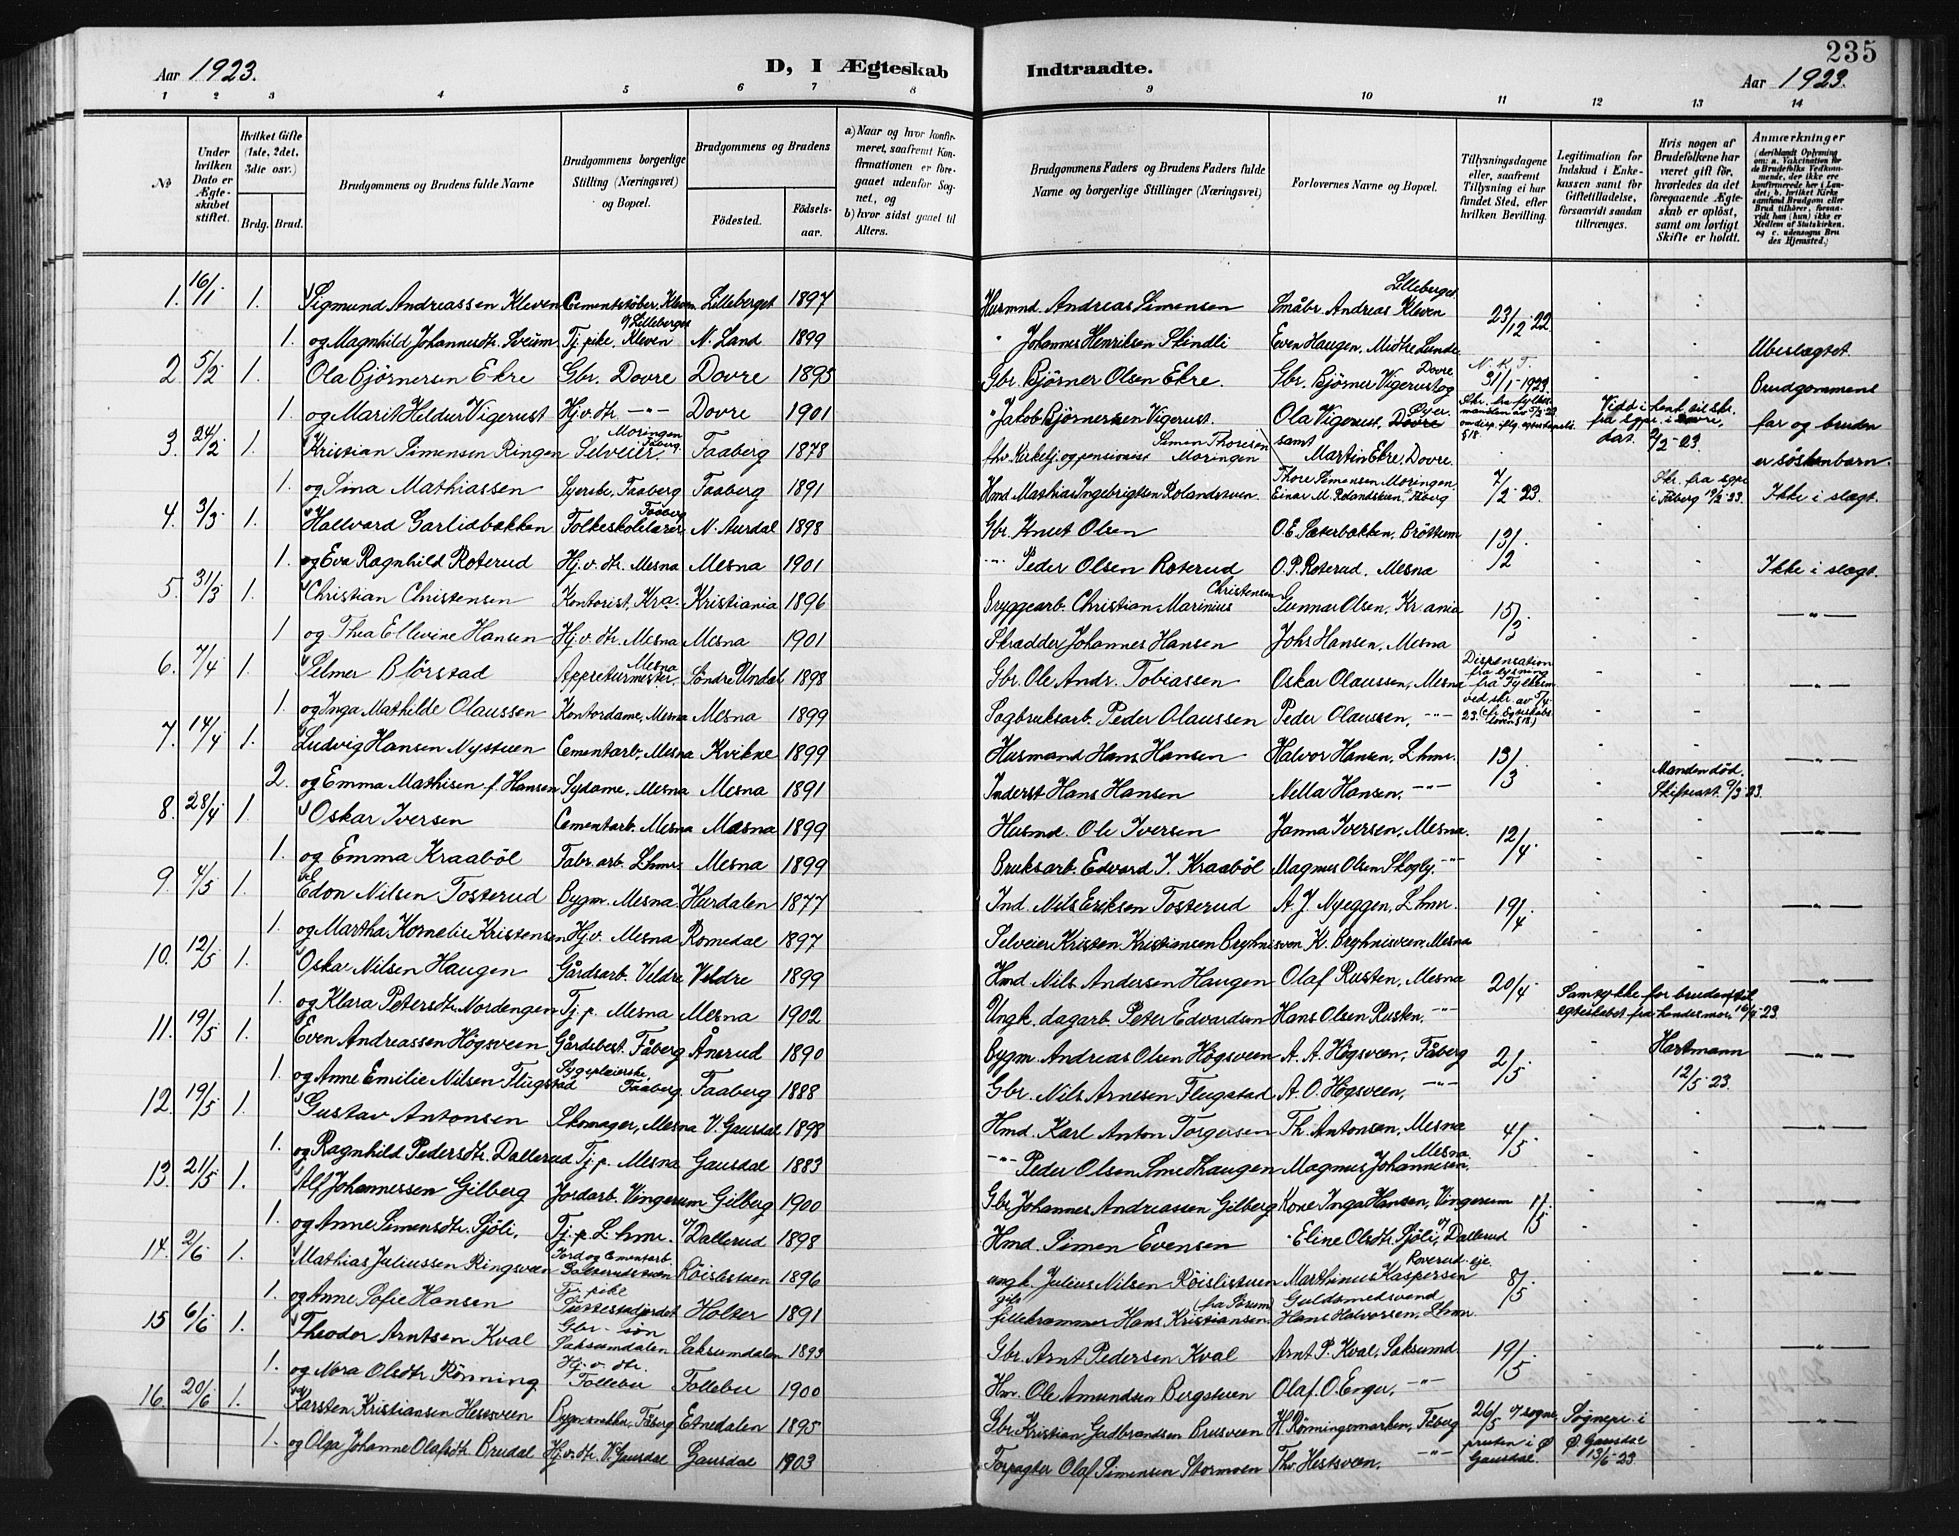 235
Aar 1923.
D, I Ægteskab
Indtraadte.
Aar 1923.
1 2 3 4 5 6 7 8 9 10 11 12 13 14
№
Under hvilken Dato er Ægteskabet stiftet.
Hvilket Gifte (1ste, 2det, 3die osv.)
Brdg. Brud.
Brudgommens og Brudens fulde Navne
Brudgommens borgerlige Stilling (Næringsvei) og Bopæl.
Brudgommens og Brudens
Fødested.
Fødselsaar.
a) Naar og hvor konfirmeret, saafremt Konfirmationen er foregaaet udenfor Sognet, og
b) hvor sidst gaaet til Alters.
Brudgommens Faders og Brudens Faders fulde Navne og borgerlige Stillinger (Næringsvei)
Forlovernes Navne og Bopæl.
Tillysningsdagene eller, saafremt Tillysning ei har fundet Sted, efter hvilken Bevilling.
Legitimation for Indskud i Enkekassen samt for Giftetilladelse, forsaavidt saadan tiltrænges.
Hvis nogen af Brudefolkene har været gift før, hvorledes da det foregaaende Ægteskab er opløst, samt om lovligt Skifte er holdt.
Anmærkninger (deriblandt Oplysning om: a. Vakcination for de Brudefolks Vedkommende, der ikke ere konfirmerede her i Landet; b. hvilket Kirkesamfund Brudgom eller Brud tilhører, forsaavidt han (hun) ikke er Medlem af Statskirken, og c. udensogns Brudes Hjemsted.)
1. 16/1 1. Sigmund Andreassen Kleven Cementstøber, Kleven Lilleberget 1897 Husmnd Andreas Simensen Småbr. Andreas Kleven Lilleberget 23/12 22
1. og Magnhild Johannesdtr. Sveum Tj. pike, Kleven u/ Lilleberget N. Land 1899 " Johannes Henriksen Skindli Even Haugen, Midtre Lunde Ubeslægtet
2 5/2 1. Ola Bjørnersen Ekre Gbr. Dovre Dovre 1895 Gbr. Bjørner Olsen Ekre. Gbr. Bjørner Vigerust og Dovre N. K. T. 31/1-1923 Brudgommens
1. og Marit Heldur Vigerust Hj.v. dtr. -"- Dovre 1901 " Jakob Bjørnersen Vigerust. Ola Vigerust, Dovre samt Martin Ekre, Dovre. far og bruden er søskenbarn.
3. 24/2 1. Kristian Simensen Ringen Selveier, Moringen Faaberg Faaberg 1878 fhv. Kirketj. og pensionist Simen Thoresen Moringen
1. og Sina Mathiassen Syerske, Faaberg Faaberg 1891 Hmd. Mathias Ingebrigtsen Rolandsveen. Thore Simensen Moringen, Einar M. Rolandsveen, Faaberg 7/2-23. Skr. fra sgpr. i Fåberg Ikke i slægt.
4. 3/3 1. Hallvard Garlidbakken Folkeskolelærer Faaberg N. Aurdal 1898 Gbr. Knut Olsen O. E. Sæterbakken, Brøttum 13/2
1. og Eva Ragnhild Roterud Hj. v. dtr. Mesna Mesna 1901 -"- Peder Olsen Roterud O. P. Roterud, Mesna Ikke i slægt.
5. 31/3 1. Christian Christensen Kontorist, Kra. Kristiania 1896 Bryggearb. Christian Marinius Christensen Gunnar Olsen, Kr.ania 15/3 -"-
1 og Thea Ellevine Hansen Hj. v. dtr. Mesna Mesna 1901 Skrædder Johannes Hansen Johs Hansen, Mesna
6. 7/4 1. Selmer Blørstad Appreturmester, Mesna Søndre Undal 1898 Gbr. Ole Andr. Tobiassen Oskar Olaussen, Mesna Dispensation fra lysning fra Fylkesm ved skr. av 5/4 23. -"-
1. og Inga Mathilde Olaussen Kontordame, Mesna Mesna 1899 Sagbruksarb. Peder Olaussen Peder Olaussen, -"-
7. 14/4 1. Ludvig Hansen Nystuen Cementarb, Mesna Kvikne 1899 Husmand Hans Hansen Halvor Hansen, Lhmr. 13/3 -"-
2. og Emma Mathisen f. Hansen Sydame, Mesna Mesna 1891 Inderst Hans Hansen Nella Hansen, -"- Manden død. Skifteatt. 9/3-23.
8. 28/4 1. Oskar Iversen Cementarb. Mesna Mesna 1899 Husmd. Ole Iversen Janna Iversen, Mesna. 12/4 -"-
1. og Emma Kraabøl Fabr. arb. Lhmr. Mesna 1899 Bruksarb. Edvard I. Kraabøl Magnus Olsen Skogly, -"-
9. 4/5 1. Edon Nilsen Tosterud Bygm. Mesna Hurdalen 1877 Ind. Nils Eriksen Tosterud A. J. Nyeggen, Lhmr. 19/4 -"-
1. og Martha Kornelie Kristensen Hj.v. Mesna Romedal 1897 Selveier Kristen Kristiansen Bryhnisveen K. Bryhnisveen, Mesna
10. 12/5 1. Oskar Nilsen Haugen Gårdsarb. Veldre Veldre 1899 Hmd. Nils Andersen Haugen Olaf Rusten, Mesna 20/4 -"-
1. og Klara Petersdtr. Nordengen Tj. p. Mesna Mesna 1902 Ungk. dagarb. Peter Edvardsen Hans Olsen Rusten, -"- Samtykke for bruden til egteskabet fra hendes mor. 16/4-23
11. 19/5 1. Even Andreassen Högsveen Gårdbest. Fåberg Ånerud 1890 Bygm. Andreas Olsen Högsveen A. A. Högsveen, Fåberg 2/5 Hartmann 12/5-23. -"-
1. og Anne Emilie Nilsen Flugstad Sygepleierske Faaberg Faaberg 1888 Gbr. Nils Arnesen Flugstad A. O. Högsveen, -"-
12. 19/5 1. Gustav Antonsen Skomager, Mesna V. Gausdal 1898 Hmd. Karl Anton Torgersen Th. Antonsen, Mesna 4/5 -"-
1. og Ragnhild Pedersdtr. Dallerud Tj. p. Mesna Gausdal 1883 -"- Peder Olsen Smedhaugen Magnus Johannesen, Mesna
13. 21/5 1. Alf Johannessen Gilberg Jordarb. Vingerum Gilberg 1900 Gbr. Johannes Andreassen Gilberg Kone Inga Hansen, Vingerum 1/5 -"-
1. og Anne Simensdtr. Sjöli, Tj. p. Lhmr. u/ Dallerud 1898 Hmd. Simen Evensen Eline Olsdtr. Sjöli, u/ Dallerud
14. 2/6 1. Mathias Juliussen Ringsveen Jord og Cementarb. Röislistuen 1896 ungk. Julius Nilsen Röislistuen Marthinus Kaspersen Roverud-eje. 8/5 -"-
1. og Anne Sofie Hansen Tj. pike Holter 1891 gift fillekræmmer Hans Kristiansen (fra Sörum) Guldsmedsvend Hans Halvorsen, Lhmr.
15 6/6 1. Theodor Arntsen Kval Gbr. søn Saksumdalen Saksumdalen 1893 Gbr. Arnt Pedersen Kval Arnt P. Kval, Saksumd. 19/5 -"-
1. og Nora Olsdtr. Rönning Hj. v. dtr. Follebu Follebu 1900 Hm. Ole Amundsen Bergstuen Olaf O. Enger, -"-
16. 20/6 1. Karsten Kristiansen Hessveen Bygmsnekker, Fåberg Etnedalen 1895 Gbr. Kristian Gudbrandsen Brusveen H. Rönningsmarken, Fåberg 26/5 v/ sogneprsten i Ø Gausdal. Sognepr. i Ø. Gausdal 13/6-23. -"-
1. og Olga Johanne Olafsdtr. Brudal Hj.v. dtr. V. Gausdal Gausdal 1903 Forpagter Olaf Simensen Stormoen Thv. Hestsveen, -"-